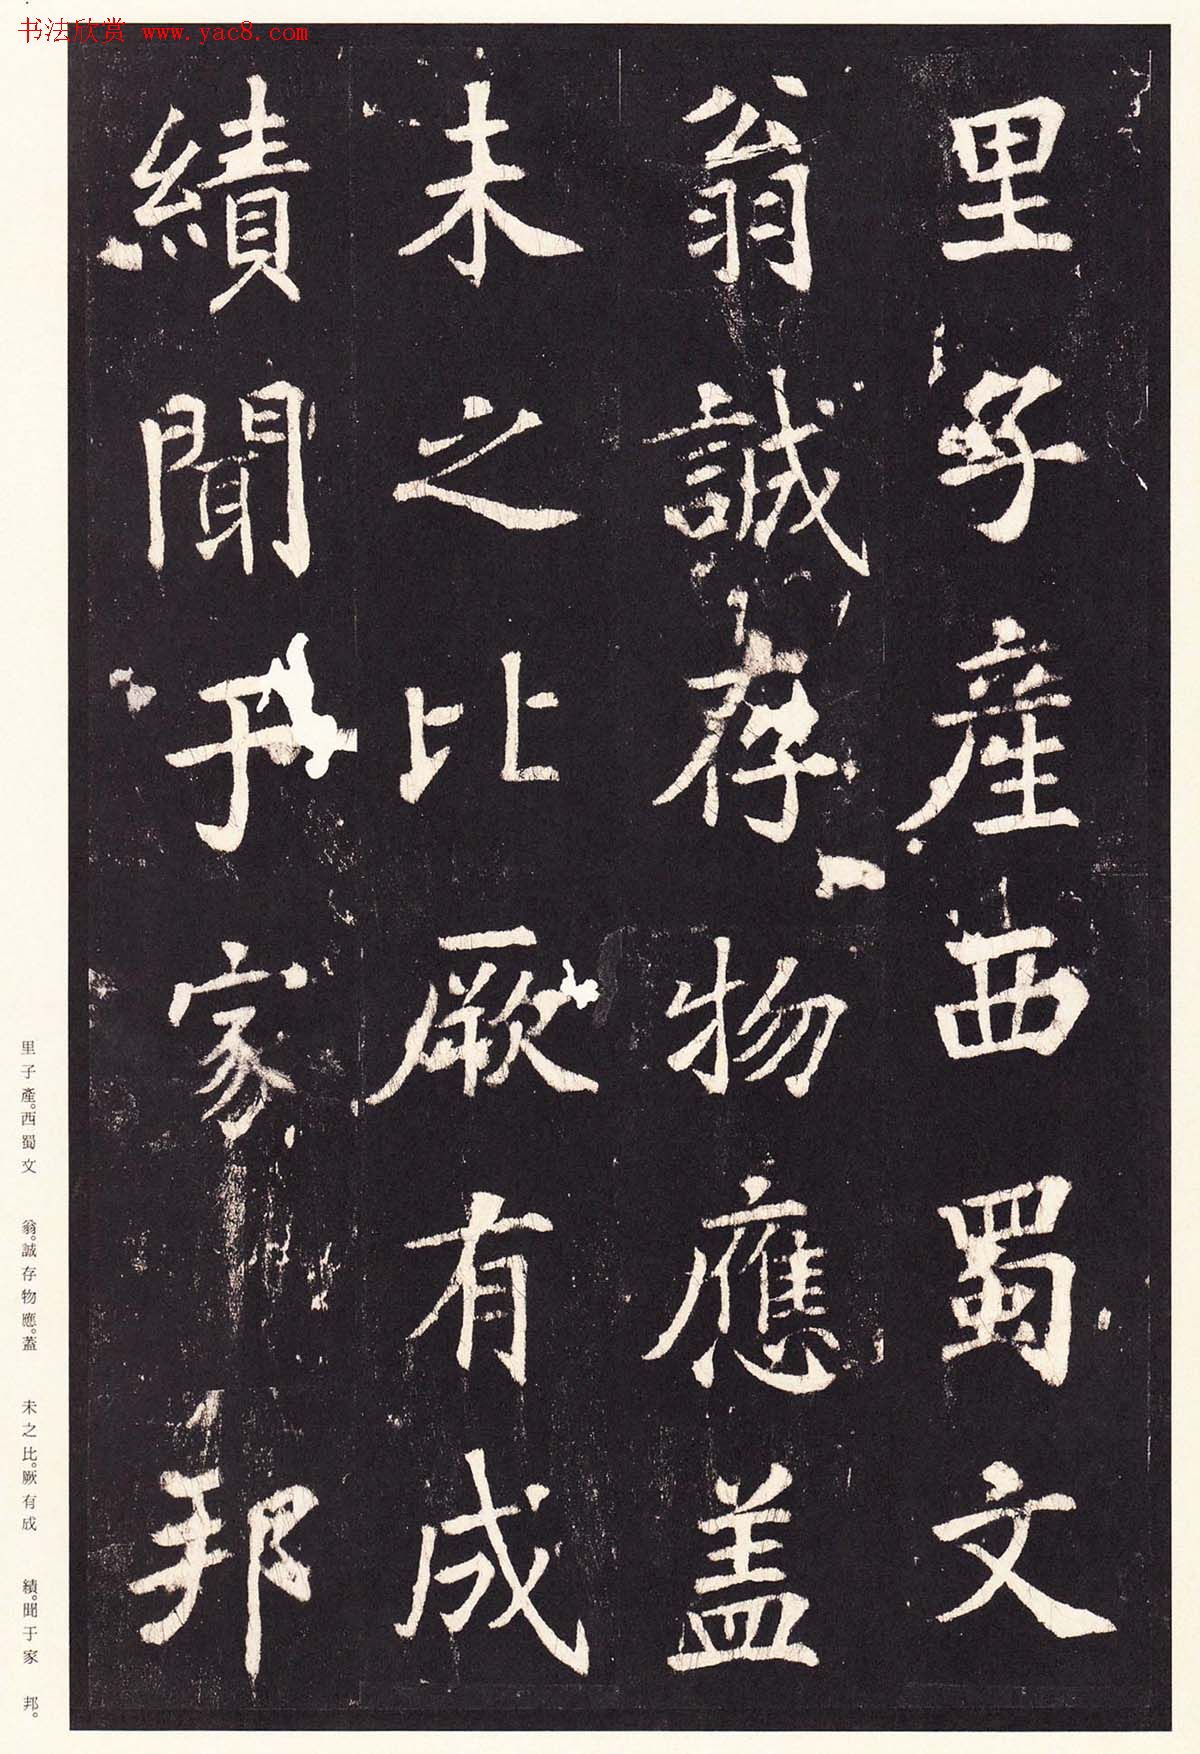 书法欣赏 www.yac8.com
里子產西蜀文
翁誠存物應盖
未之比厥有成
績聞于家邦
里子產。西蜀文 翁。誠存物應。蓋 未之比。厥有成 績。聞于家 邦。